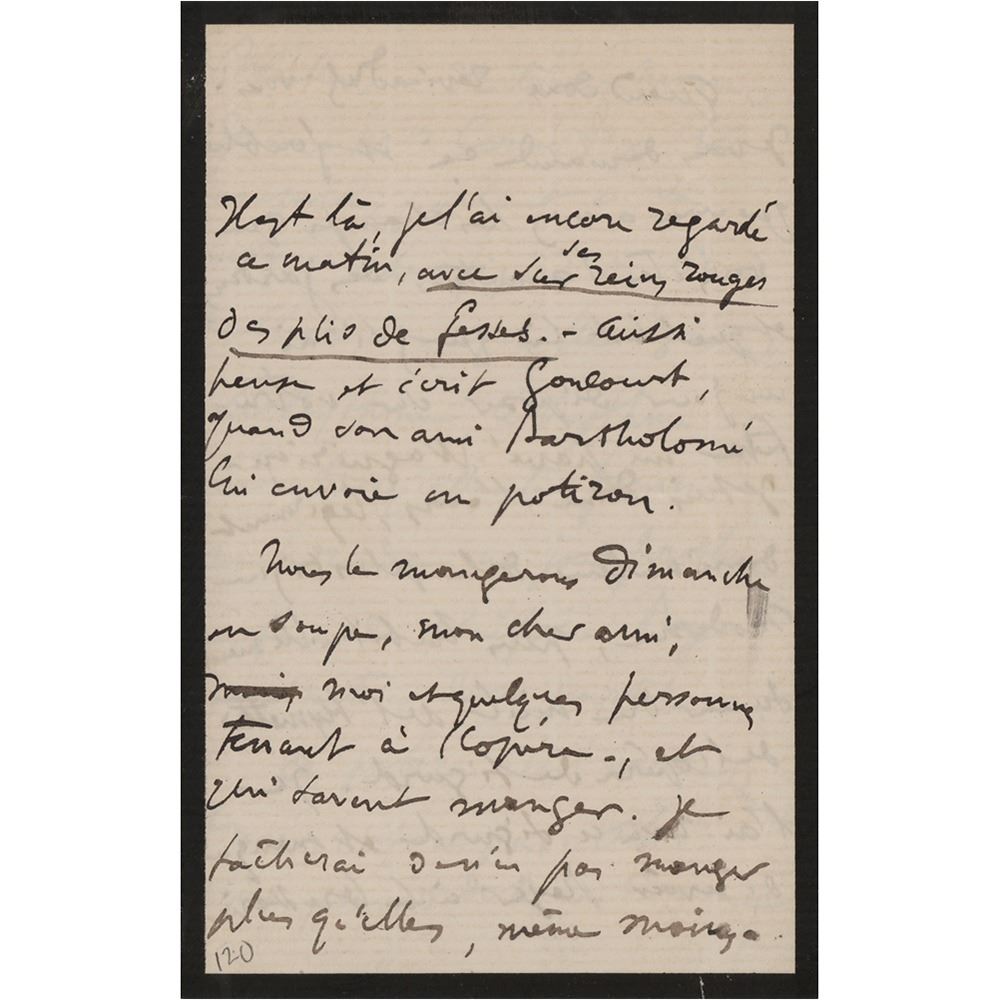 Il est là, je l'ai encore regardé
ce matin, avec ses reins rouges
des plis de fesses. – Aussi
pense et écrit Goncourt,
quand son ami Bartholomé
lui envoie un potiron.
Nous le mangerons Dimanche
en soupe, mon cher ami,
mais moi et quelques personnes
tenant à l'opéra –, et
qui savent manger. Je
tâcherai de n'en pas manger
plus qu'elles, même moins.
120